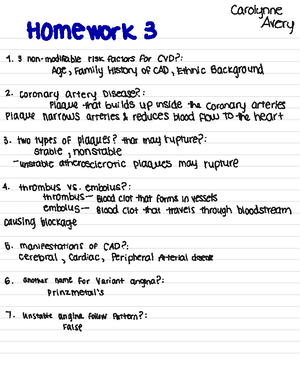 Carolynne
Avery
Homework 3
1. 3 non-modifiable risk factors for CVD?:
Age, Family History of CAD, Ethnic Background
2. Coronary Artery Disease?:
Plaque that builds up inside the coronary arteries
Plaque narrows arteries & reduces blood flow to the heart
3. two types of plaques? that may rupture?:
stable, nonstable
-unstable atherosclerotic plaques may rupture
4. thrombus vs. embolus?:
thrombus— Blood clot that forms in vessels
embolus— Blood clot that travels through bloodstream
causing blockage
5. manifestations of CAD?:
Cerebral, Cardiac, Peripheral Arterial disease
6. another name for Variant angina?:
Prinzmetal's
7. Unstable angina follow pattern?:
False